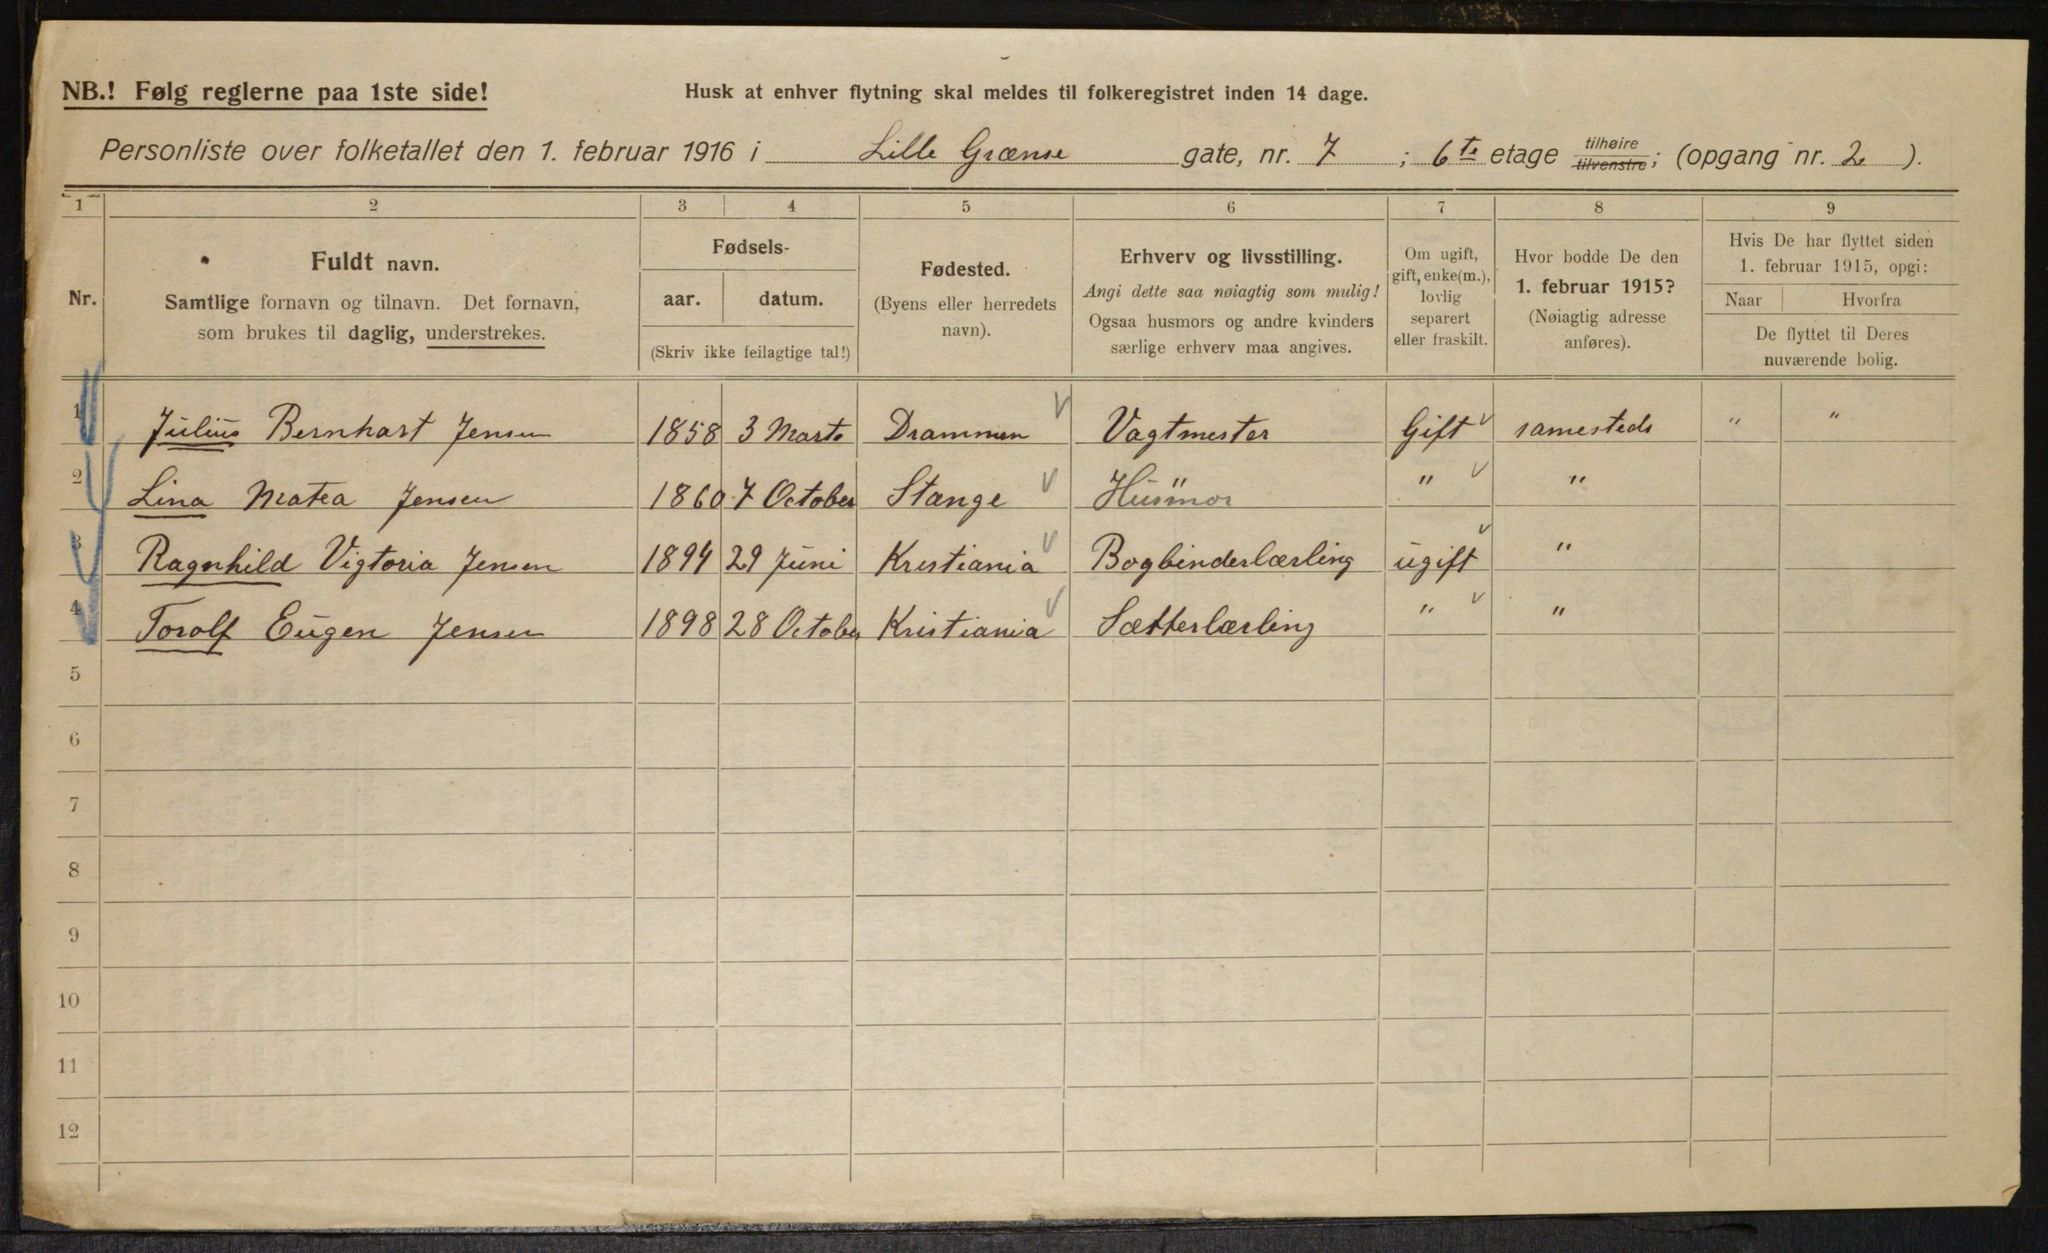 NB.! Følg reglerne paa 1ste side!
Husk at enhver flytning skal meldes til folkeregistret inden 14 dage.
Personliste over folketallet den 1. februar 1916 i Lille Grænse gate, nr. 7 ; 6te etage tilhøire tilvenstre; (opgang nr. 2 ).
1 2 3 4 5 6 7 8 9
Nr.
Fuldt navn.
Samtlige fornavn og tilnavn. Det fornavn,
som brukes til daglig, understrekes.
Fødsels-
aar. datum.
(Skriv ikke feilagtige tal!)
Fødested.
(Byens eller herredets
navn).
Erhverv og livsstilling.
Angi dette saa nøiagtig som mulig!
Ogsaa husmors og andre kvinders
særlige erhverv maa angives.
Om ugift,
gift, enke(m.),
lovlig
separert
eller fraskilt.
Hvor bodde De den
1. februar 1915?
(Nøiagtig adresse
anføres).
Hvis De har flyttet siden
1. februar 1915, opgi:
Naar Hvorfra
De flyttet til Deres
nuværende bolig.
1 Julius Bernhart Jensen 1858 3 Marts Drammen Vagtmester Gift samesteds " "
2 Lina Matea Jensen 1860 7 October Stange Husmor " "
3 Ragnhild Vigtoria Jensen 1894 29 Juni Kristiania Bogbinderlærling ugift "
4 Torolf Eugen Jensen 1898 28 October Kristiania Sætterlærling " "
5
6
7
8
9
10
11
12